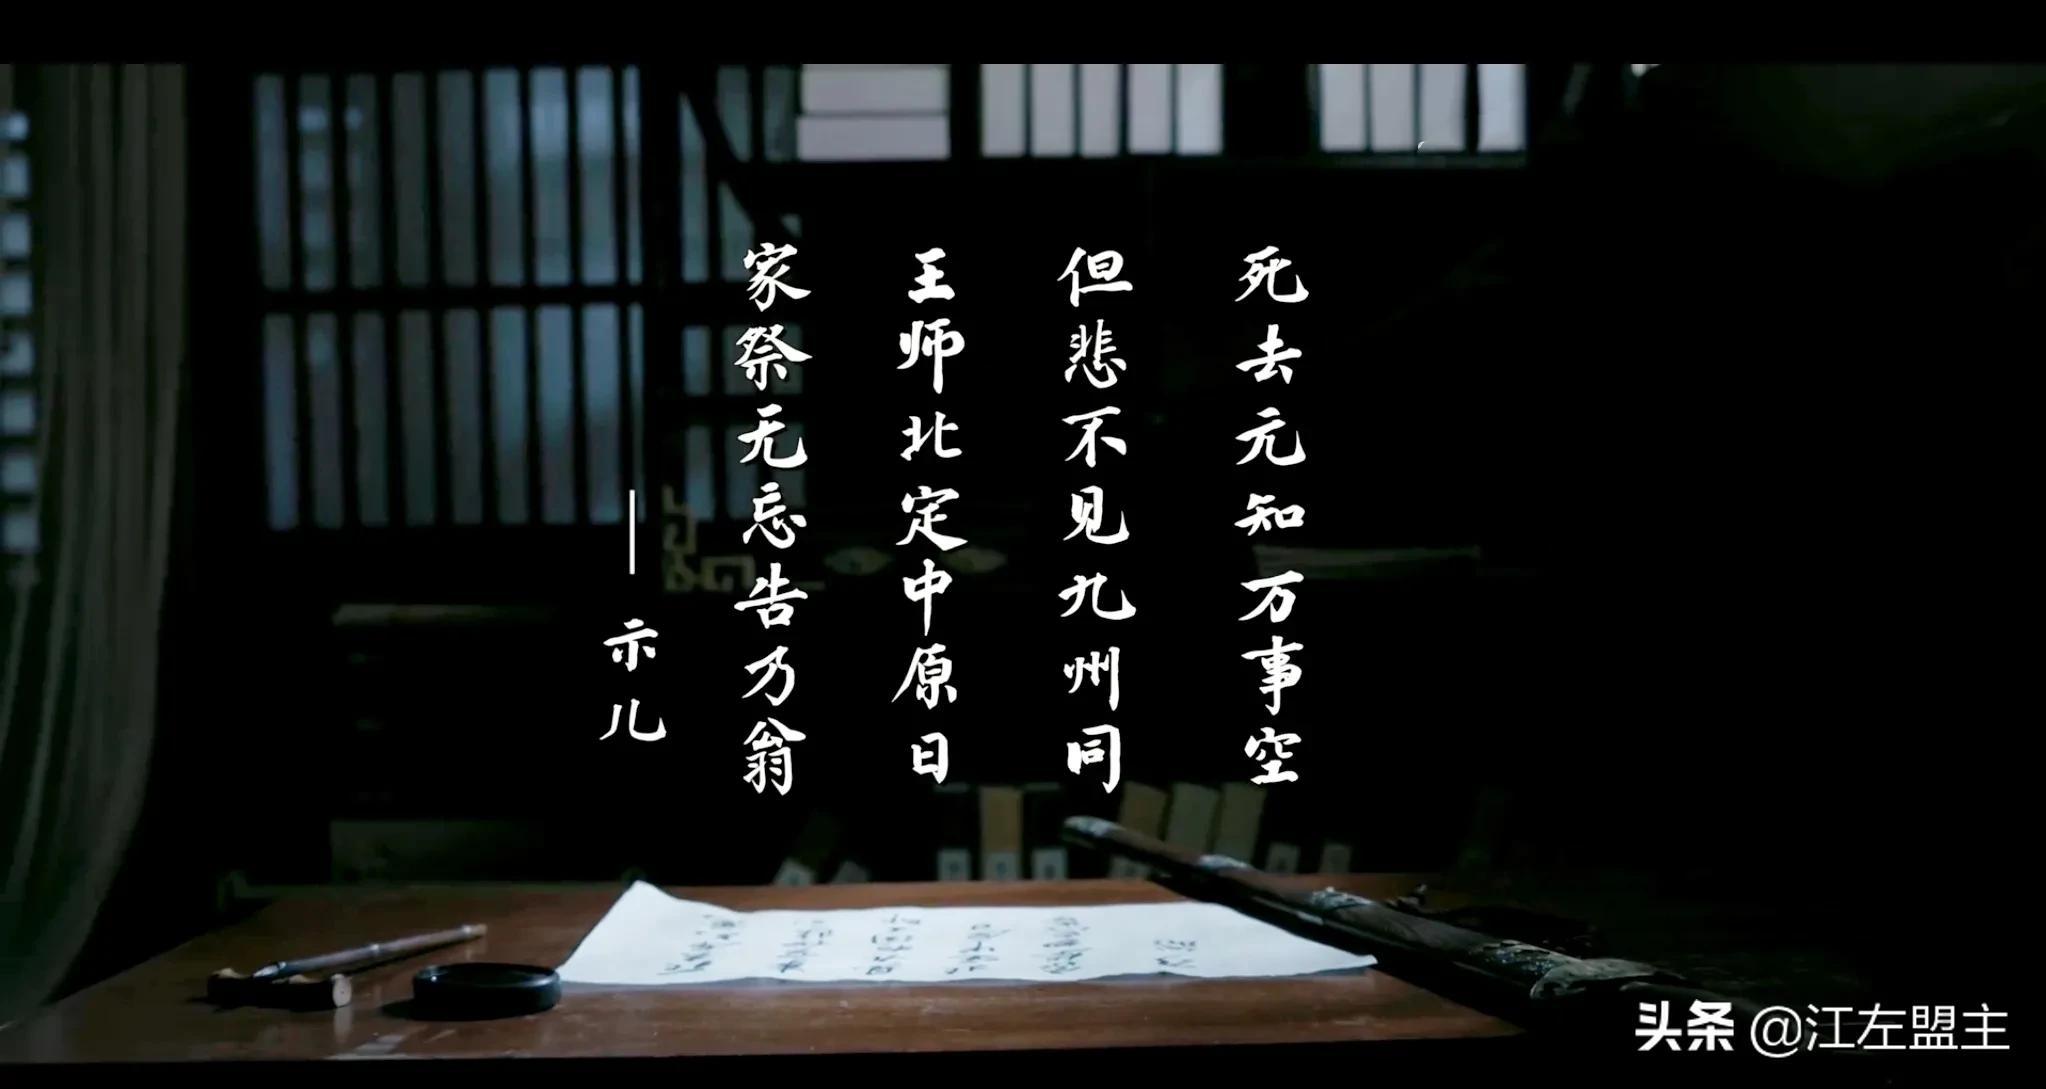 死去元知万事空
但悲不见九州同
王师北定中原日
家祭无忘告乃翁
——示儿
头条 @江左盟主